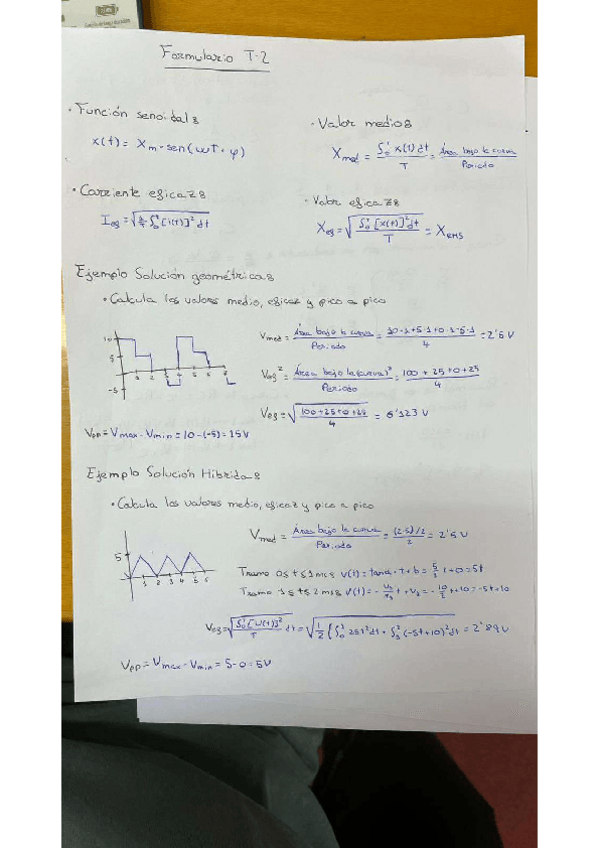 Formulario T-2
· Función senoidal:
x(t) = Xm · sen(ωT · φ)
· Valor medio:
Xmed = ∫₀ᵀ x(t) dt / T = Área bajo la curva / Periodo
· Corriente eficaz:
Ief = √(1/T ∫₀ᵀ [i(t)]² dt)
· Valor eficaz:
Xef = √(∫₀ᵀ [x(t)]² dt / T) = XRMS
Ejemplo Solución geométrica:
· Calcula los valores medio, eficaz y pico a pico
10
5
-5
1 2 3 4 5 6 7 8
Vmed = Área bajo la curva / Periodo = 10·1+5·1+0·1-5·1 / 4 = 2'5 V
Vef² = Área bajo la (curva)² / Periodo = 100 + 25 + 0 + 25 / 4
Vef = √(100+25+0+25 / 4) = 6'123 V
Vpp = Vmax - Vmin = 10 - (-5) = 15 V
Ejemplo Solución Híbrida:
· Calcula los valores medio, eficaz y pico a pico
5
1 2 3 4 5 6
Vmed = Área bajo la curva / Periodo = (2·5)/2 / 2 = 2'5 V
Tramo 0≤t≤1 ms: v(t) = tanα · t + b = 5/1 t + 0 = 5t
Tramo 1≤t≤2 ms: v(t) = t + = - 10/2 t + 10 = -5t + 10
Vef = √(∫₀ᵀ [v(t)]² / T dt) = √(1/2 (∫₀¹ 25t² dt + ∫₁² (-5t+10)² dt) = 2'89 V
Vpp = Vmax - Vmin = 5 - 0 = 5V